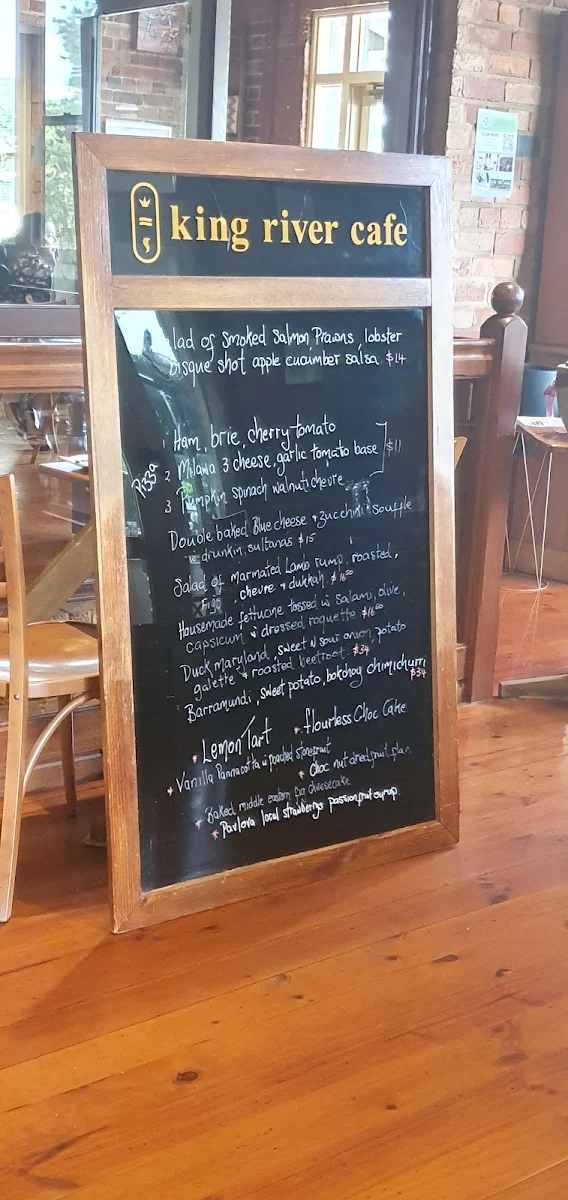 king river cafe
lad of smoked salmon, Prawns, lobster
bisque shot apple cucumber salsa $14
Pizza
1 Ham, brie, cherry tomato
2 Milawa 3 cheese, garlic tomato base $11
3 Pumpkin spinach walnut chevre
Double baked Blue cheese + zucchini souffle
drunkin sultanas $15
Salad of marinated Lamb rump, roasted,
chevre + dukkah $16⁵⁰
Housemade fettucine tossed w salami, olive,
capsicum + dressed roquette $16⁵⁰
Duck maryland, sweet N sour onion, potato
galette + roasted beetroot $34
Barramundi, sweet potato, bokchoy chimichurri $34
* Lemon Tart * flourless Choc Cake
* Vanilla Pannacotta w poached stonefruit
* Choc nut dried fruit flan
* Baked middle eastern cheesecake
* Pavlova local strawberrys passionfruit syrup